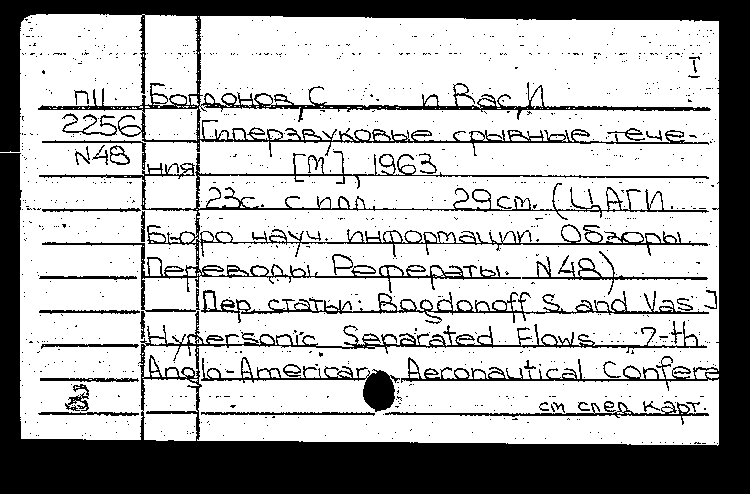 I
П11 Богдонов, С. и Вас, И
2256 Гиперзвуковые срывные тече-
N48 ния [М], 1963.
23с. с илл. 29см. (ЦАГИ.
Бюро науч. информации. Обзоры.
Переводы. Рефераты. N48).
Пер статьи: Bogdonoff S. and Vas J
Hypersonic Separated Flows. „7-th
Anglo-American Aeronautical Confere
см след карт.